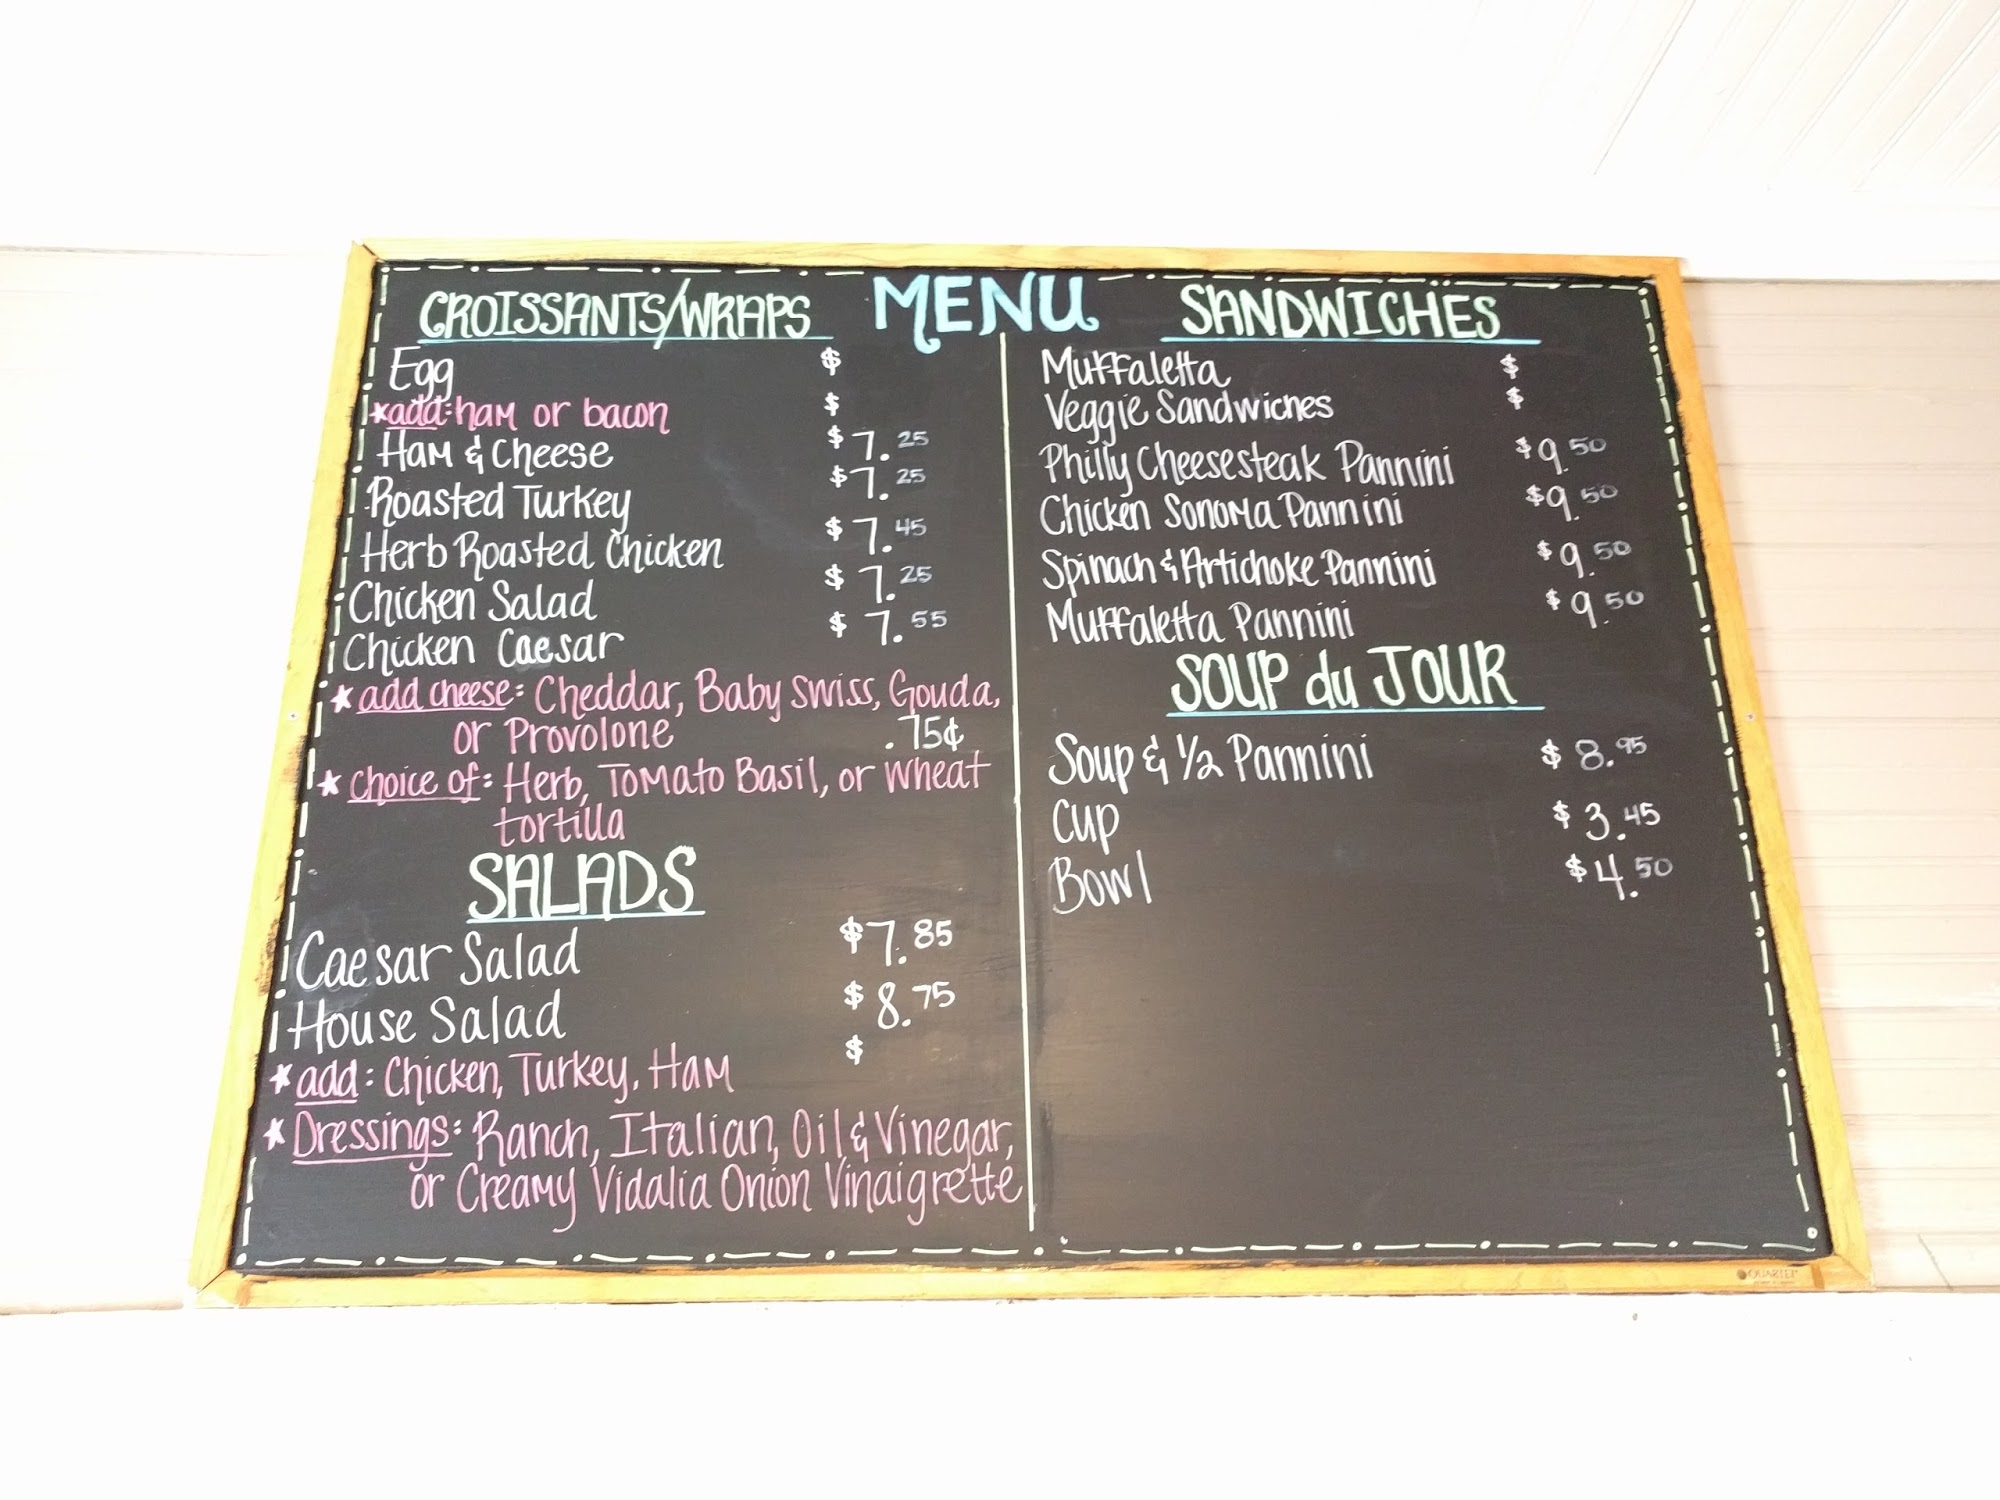 MENU
CROISSANTS/WRAPS
Egg $
*add: ham or bacon $
Ham & Cheese $7.25
Roasted Turkey $7.25
Herb Roasted Chicken $7.45
Chicken Salad $7.25
Chicken Caesar $7.55
*add cheese: Cheddar, Baby Swiss, Gouda,
or Provolone .75¢
*choice of: Herb, Tomato Basil, or wheat
tortilla
SALADS
Caesar Salad $7.85
House Salad $8.75
*add: Chicken, Turkey, Ham $
*Dressings: Ranch, Italian, Oil & Vinegar,
or Creamy Vidalia Onion Vinaigrette
SANDWICHES
Muffaletta $
Veggie Sandwiches $
Philly Cheesesteak Pannini $9.50
Chicken Sonoma Pannini $9.50
Spinach & Artichoke Pannini $9.50
Muffaletta Pannini $9.50
SOUP du JOUR
Soup & 1/2 Pannini $8.95
Cup $3.45
Bowl $4.50
QUARTET